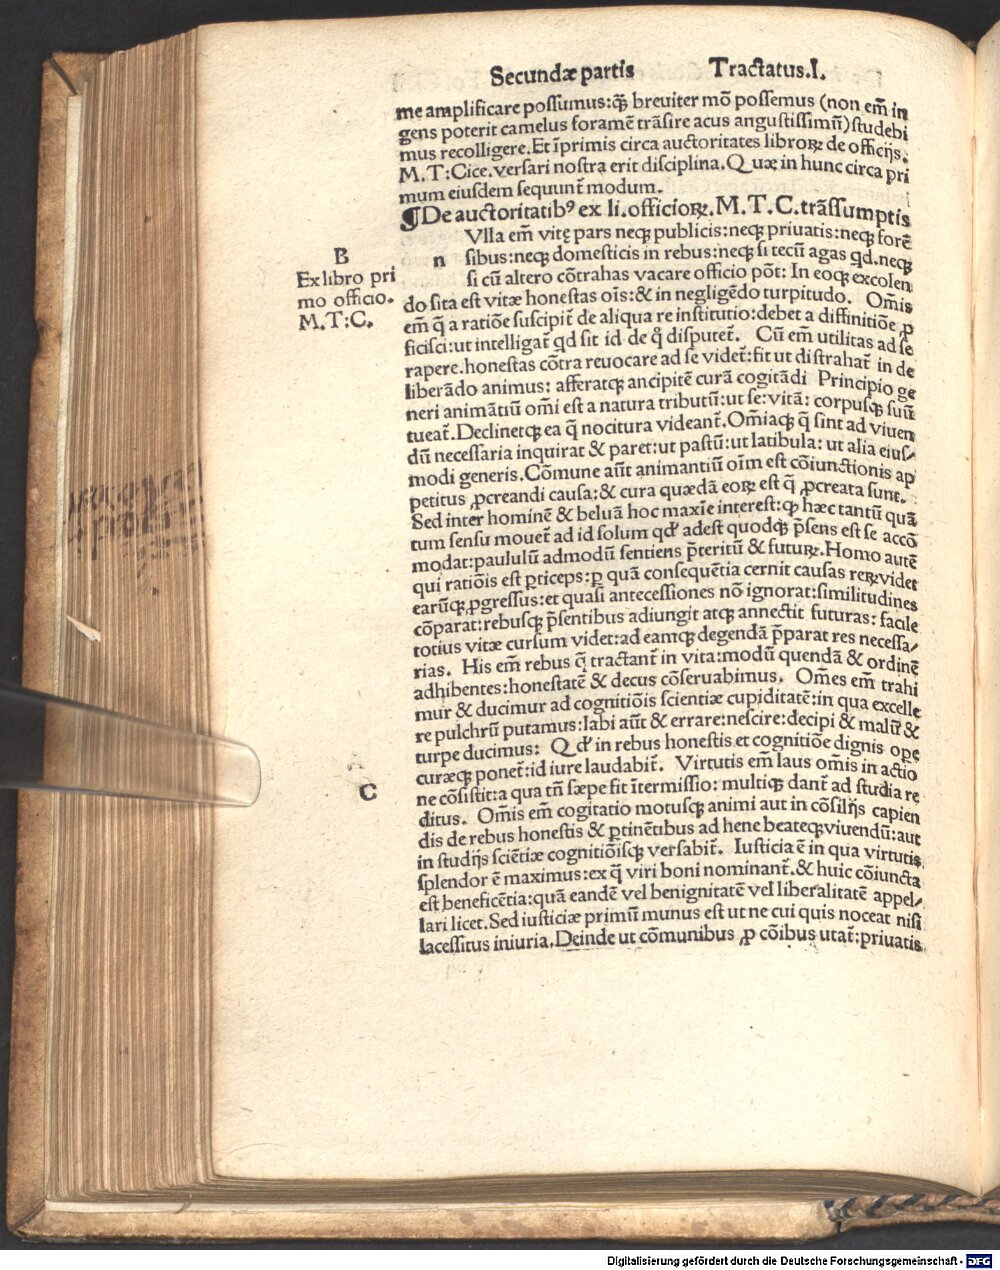 Secundæ partis Tractatus.I.
me amplificare possumus:ꝙ̃ breuiter mõ possemus (non em̃ in
gens poterit camelus foramē trãsire acus angustissimũ) studebi
mus recolligere.Et ĩprimis circa auctoritates libroꝝ de officijs.
M.T:Cice.versari nostra erit disciplina.Quæ in hunc circa pri
mum eiusdem sequunt᷑ modum.
¶De auctoritatibꝰ ex li.officioꝝ.M.T.C.trãssumptis
B
Ex libro pri
mo officio.
M.T:C.
n
Vlla em̃ vitę pars neqꝫ publicis:neqꝫ priuatis:neqꝫ forẽ
sibus:neqꝫ domesticis in rebus:neqꝫ si tecũ agas qd.neqꝫ
si cũ altero cõtrahas vacare officio põt: In eoqꝫ excolen
do sita est vitæ honestas oĩs:& in negligẽdo turpitudo. Om̃is
em̃ q̃ a ratiõe suscipit᷑ de aliqua re institutio:debet a diffinitiõe ꝓ
ficisci:ut intelligat᷑ qd sit id de q̃ disputet᷑. Cũ em̃ utilitas ad se
rapere.honestas cõtra reuocare ad se videt᷑:fit ut distrahat᷑ in de
liberãdo animus: afferatqꝫ ancipitẽ curã cogitãdi Principio ge
neri animãtiũ om̃i est a natura tributũ:ut se:vitã: corpusqꝫ suũ
tueat᷑.Declinetqꝫ ea q̃ nocitura videant᷑.Om̃iaqꝫ q̃ sint ad viuen
dũ necessaria inquirat & paret:ut pastũ:ut latibula: ut alia eius⸗
modi generis.Cõmune aũt animantiũ oĩm est cõiunctionis ap
petitus ꝓcreandi causa:& cura quædã eoꝝ est q̃ ꝓcreata sunt.
Sed inter hominẽ & beluã hoc maxĩe interest:ꝙ hæc tantũ quã
tum sensu mouet᷑ ad id solum qđ adest quodqꝫ p̃sens est se accõ
modat:paululũ admodũ sentiens p̃teritũ & futuꝝ.Homo autẽ
qui ratiõis est ꝑticeps:ꝑ quã consequẽtia cernit causas reꝝ videt
earũqꝫ ꝓgressus:et quasi antecessiones nõ ignorat:similitudines
cõparat:rebusqꝫ p̃sentibus adiungit atqꝫ annectit futuras: facile
totius vitæ cursum videt:ad eamqꝫ degendã p̃parat res necessa⸗
rias. His em̃ rebus q̃ tractant᷑ in vita:modũ quendã & ordinẽ
adhibentes:honestatẽ & decus cõseruabimus. Om̃es em̃ trahi
mur & ducimur ad cognitiõis scientiæ cupiditatẽ:in qua excelle
re pulchrũ putamus:labi aũt & errare:nescire:decipi & malũ &
turpe ducimus: Qđ in rebus honestis et cognitiõe dignis ope
curæqꝫ ponet᷑:id iure laudabit᷑. Virtutis em̃ laus om̃is in actio
C
ne cõsistit:a qua tñ sæpe fit ĩtermissio: multiqꝫ dant᷑ ad studia re
ditus. Om̃is em̃ cogitatio motusqꝫ animi aut in cõsilijs capien
dis de rebus honestis & ꝑtinẽtibus ad hene beateqꝫ viuendũ:aut
in studijs sciẽtiæ cognitiõisqꝫ versabit᷑. Iusticia ẽ in qua virtutis
splendor ẽ maximus:ex q̃ viri boni nominant᷑.& huic cõiuncta
est beneficẽtia:quã eandẽ vel benignitatẽ vel liberalitatẽ appel⸗
lari licet.Sed iusticiæ primũ munus est ut ne cui quis noceat nisi
lacessitus iniuria.Deinde ut cõmunibus ꝓ cõibus utat᷑:priuatis
Digitalisierung gefördert durch die Deutsche Forschungsgemeinschaft - DFG